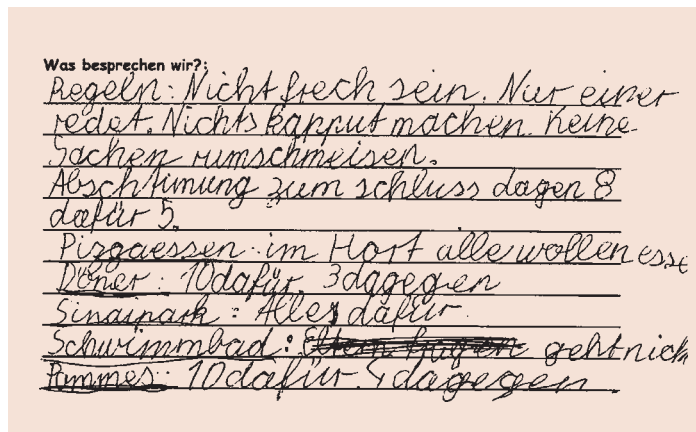 Was besprechen wir?:
Regeln: Nicht frech sein. Nur einer
redet. Nichts kapput machen. Keine
Sachen rumschmeisen.
Abschtimung zum schluss dagen 8
dafür 5.
Pizzaessen: im Hort alle wollen esse
Döner: 10 dafür. 3 dagegen
Sinaipark: Alle dafür
Schwimmbad: Eltern fragen geht nich
Pommes: 10 dafür. 4 dagegen.